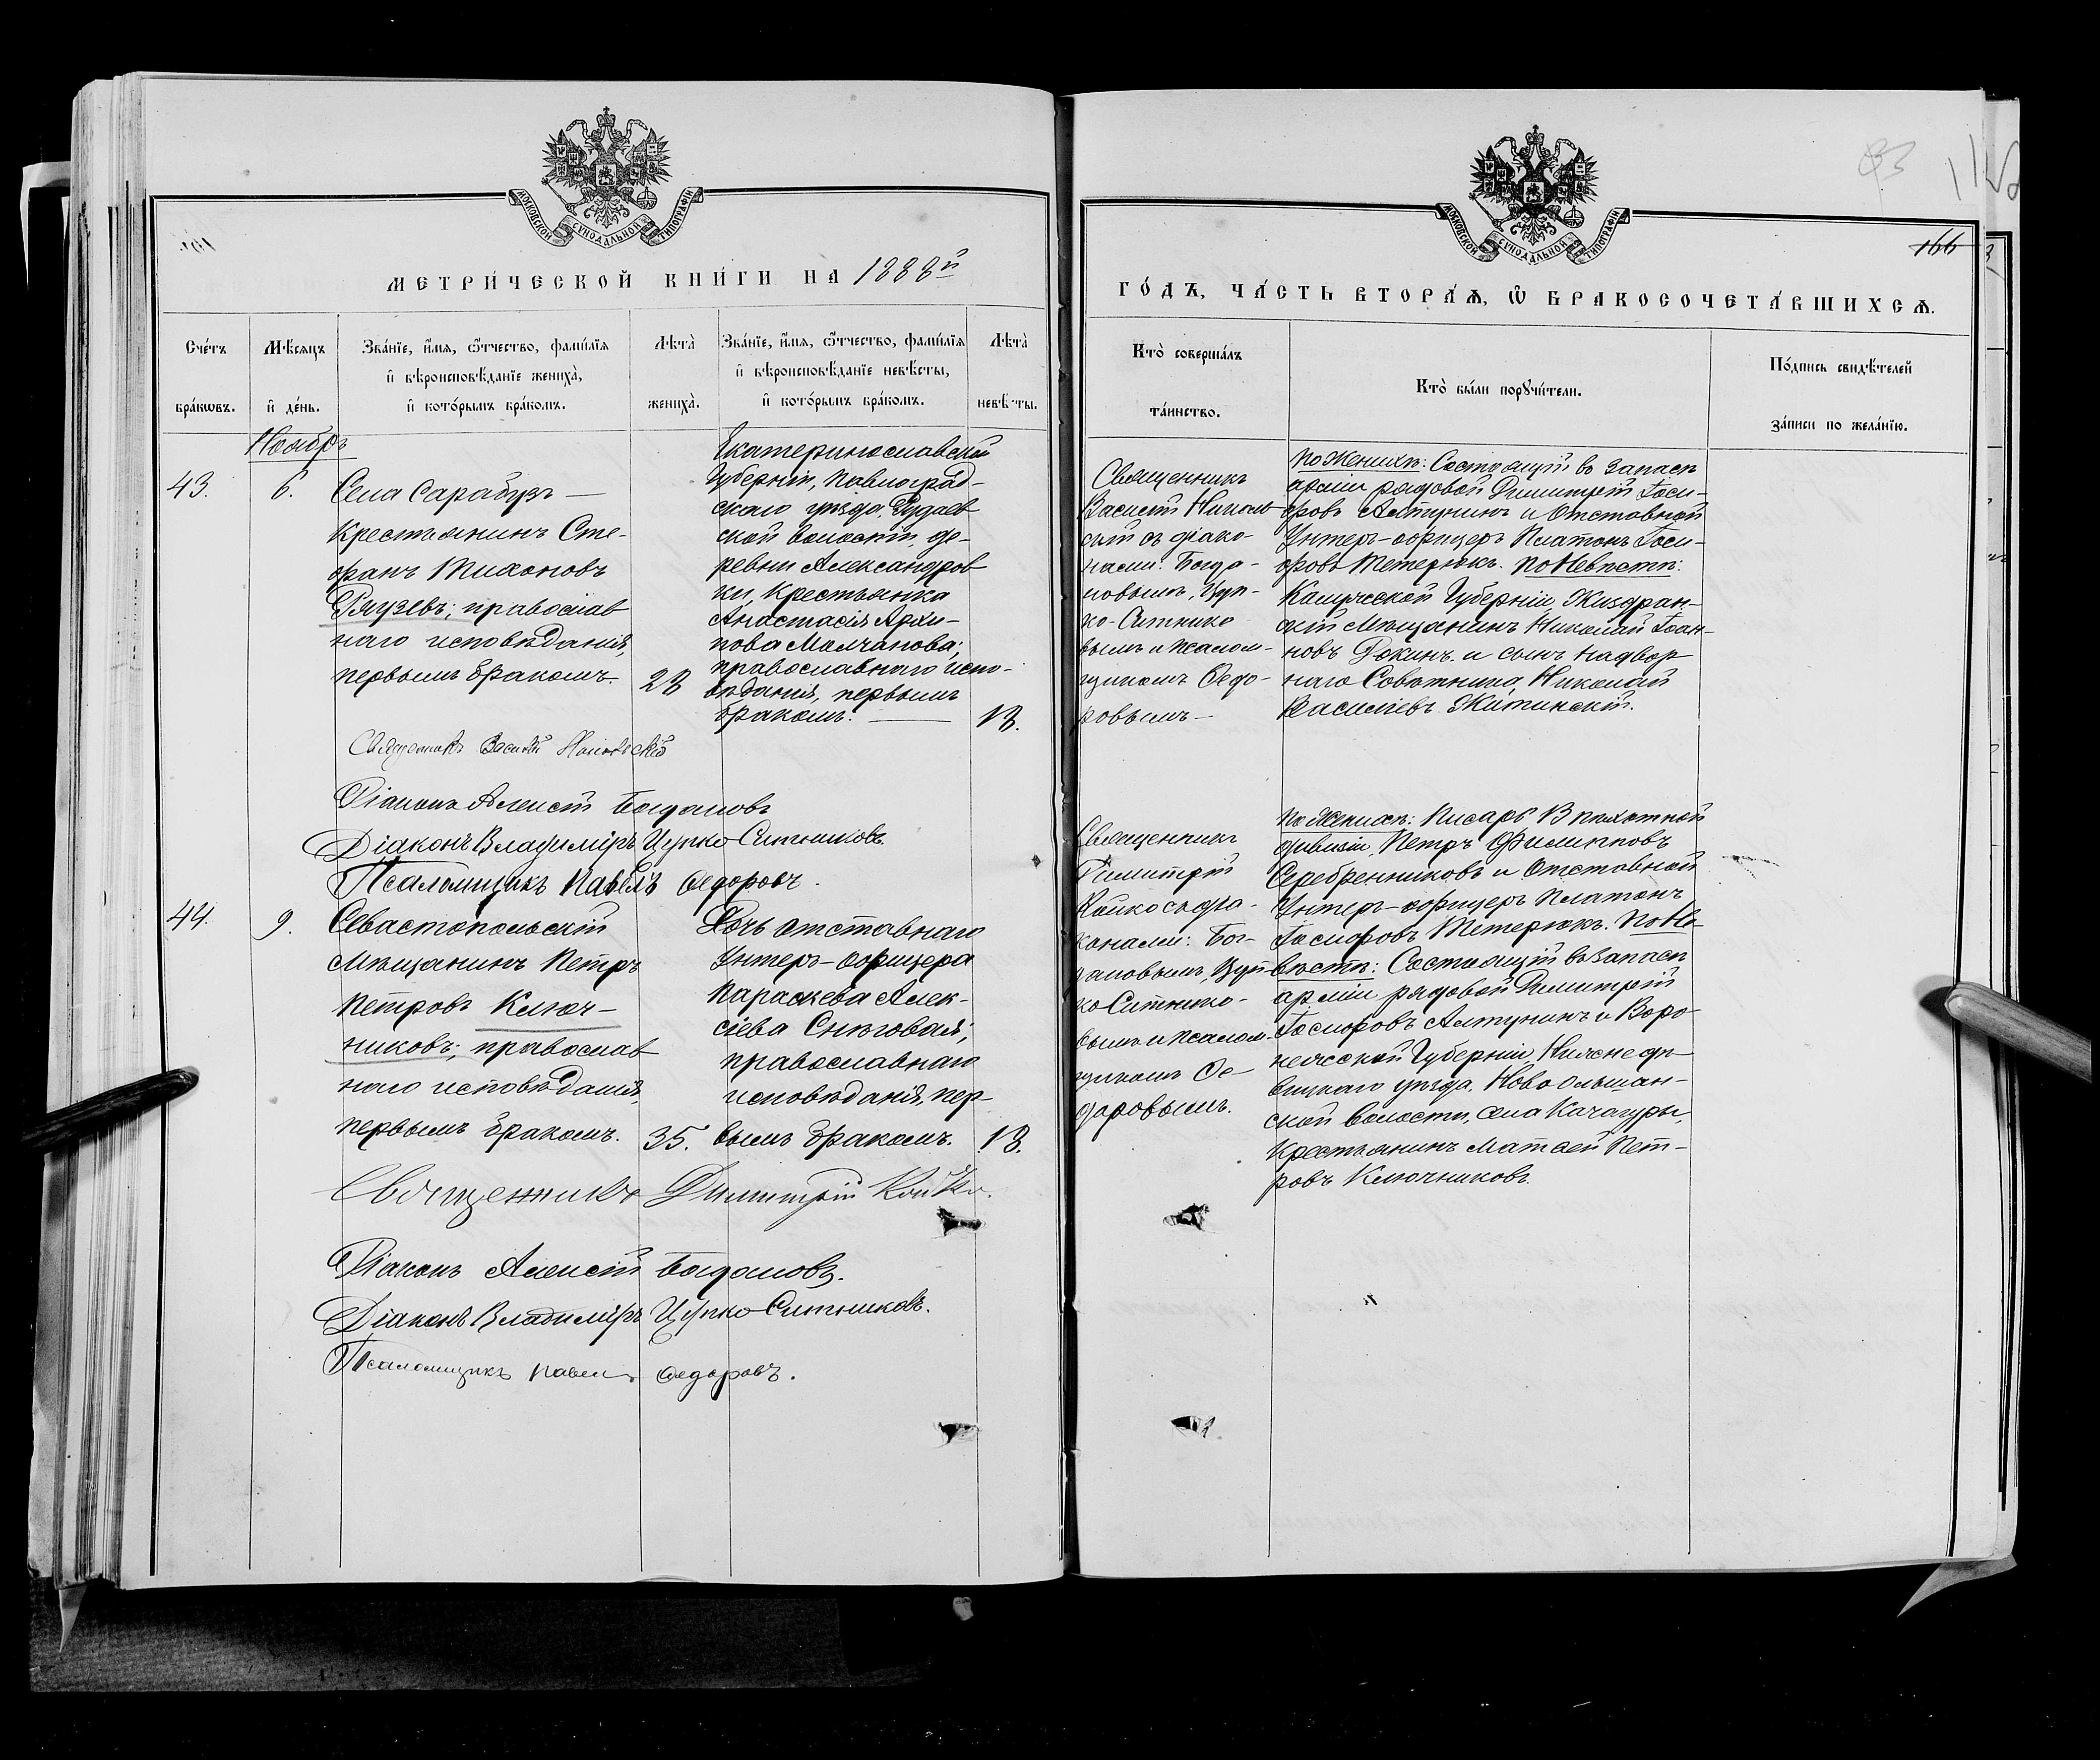 МОСКОВСКОЙ СѴНОДАЛЬНОЙ ТИПОГРАФІИ
МЕТРИ́ЧЕСКОЙ КНИ́ГИ НА 1888й
Сче́тъ бра́кѡвъ.
Мѣ́сяцъ и҆ де́нь.
Зва́нїе, и҆́мя, ѻ҆́тчество, фами́лїя и҆ вѣроисповѣ́данїе жениха̀, и҆ кото́рымъ бра́комъ.
Лѣ́та̀ жениха̀.
Зва́нїе, и҆́мя, ѻ҆́тчество, фами́лїя и҆ вѣроисповѣ́данїе невѣ́сты, и҆ кото́рымъ бра́комъ.
Лѣ́та̀ невѣ́сты.
Ноябрь
43.
6.
Села Сарабузъ —
крестьянинъ Сте-
фанъ Тихоновъ
православ
наго исповѣданія,
первымъ бракомъ.
28
Екатеринославской
Губерніи, Павлоград-
скаго уѣзда,
ской волости, де-
ревни Александров
ки, Крестьянка
Анастасія Архи-
пова Молчанова;
православнаго испо-
вѣданія, первымъ
бракомъ. —
18.
Священникъ Василій Никольскій
Діаконъ Алексій Богдановъ
Діаконъ Владиміръ Цупко-Ситниковъ.
Псаломщикъ Павелъ Ѳедоровъ.
44.
9.
Севастопольскій
мѣщанинъ Петръ
Петровъ Ключ-
никовъ; православ
наго исповѣданія,
первымъ бракомъ.
35.
Дочь отставнаго
Унтеръ-офицера
Параскева Алек-
сіева Снѣговая;
православнаго
исповѣданія, пер-
вымъ бракомъ.
18.
Священникъ Димитрій Койко.
Діаконъ Алексій Богдановъ.
Діаконъ Владиміръ Цупко-Ситниковъ.
Псаломщикъ Павелъ Ѳедоровъ.
МОСКОВСКОЙ СѴНОДАЛЬНОЙ ТИПОГРАФІИ
166
ГО́ДЪ, ЧА́СТЬ ВТОРА́Ѧ, Ѡ҆ БРАКОСОЧЕТА́ВШИХСѦ.
Кто̀ соверша́лъ та́инство.
Кто̀ бы́ли порꙋчи́тели.
По́дпись свидѣ́телей за́писи по жела́нїю.
Священникъ
Василій Николь
скій съ діако-
нами: Богда-
новымъ, Цуп-
ко-Ситнико
вымъ и псалом-
щикомъ Ѳедо-
ровымъ —
По женихѣ: Состоящій въ запасѣ
арміи рядовой Димитрій Іоси-
фовъ Алтунинъ и Отставной
Унтеръ-офицеръ Платонъ Іоси-
фовъ Тетерюкъ. По Невѣстѣ:
Калужской Губерніи, Жиздрин-
скій мѣщанинъ Николай Іоан-
новъ и сынъ надвор
наго Совѣтника, Николай
Васильевъ Житинскій.
Священникъ
Димитрій
Койко съ діа-
конами: Бог-
дановымъ, Цуп-
ко-Ситнико-
вымъ и псалом-
щикомъ Ѳе-
доровымъ.
По женихѣ: Писарь 13 пѣхотной
дивизіи, Петръ Филипповъ
Серебренниковъ и Отставной
Унтеръ-офицеръ Платонъ
Іосифовъ Тетерюкъ. По Не-
вѣстѣ: Состоящій въ запасѣ
арміи рядовой Димитрій
Іосифовъ Алтунинъ и Воро-
нежской Губерніи, Нижнедѣ-
вицкаго уѣзда, Ново ольшан-
ской волости, села Качагуры,
крестьянинъ Матѳей Пет-
ровъ Ключниковъ.